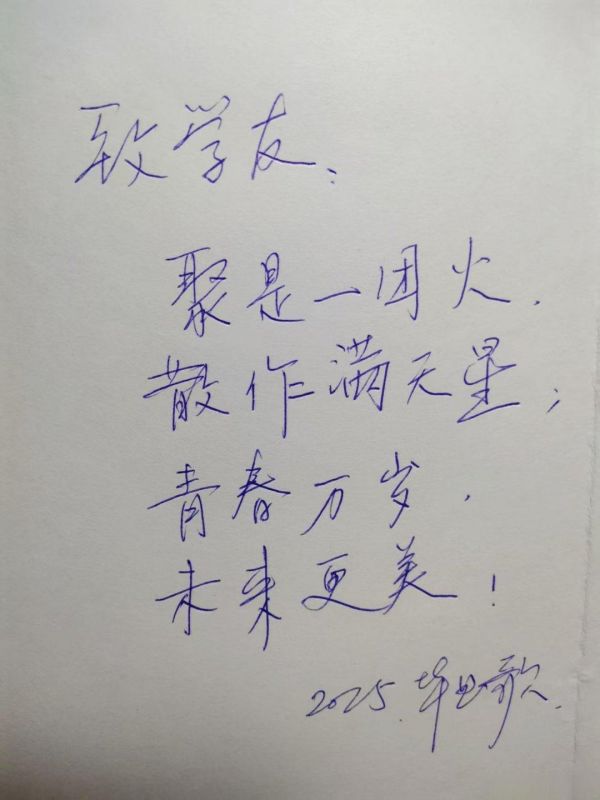 致学友：
聚是一团火，
散作满天星；
青春万岁，
未来更美！
2025.毕业歌.